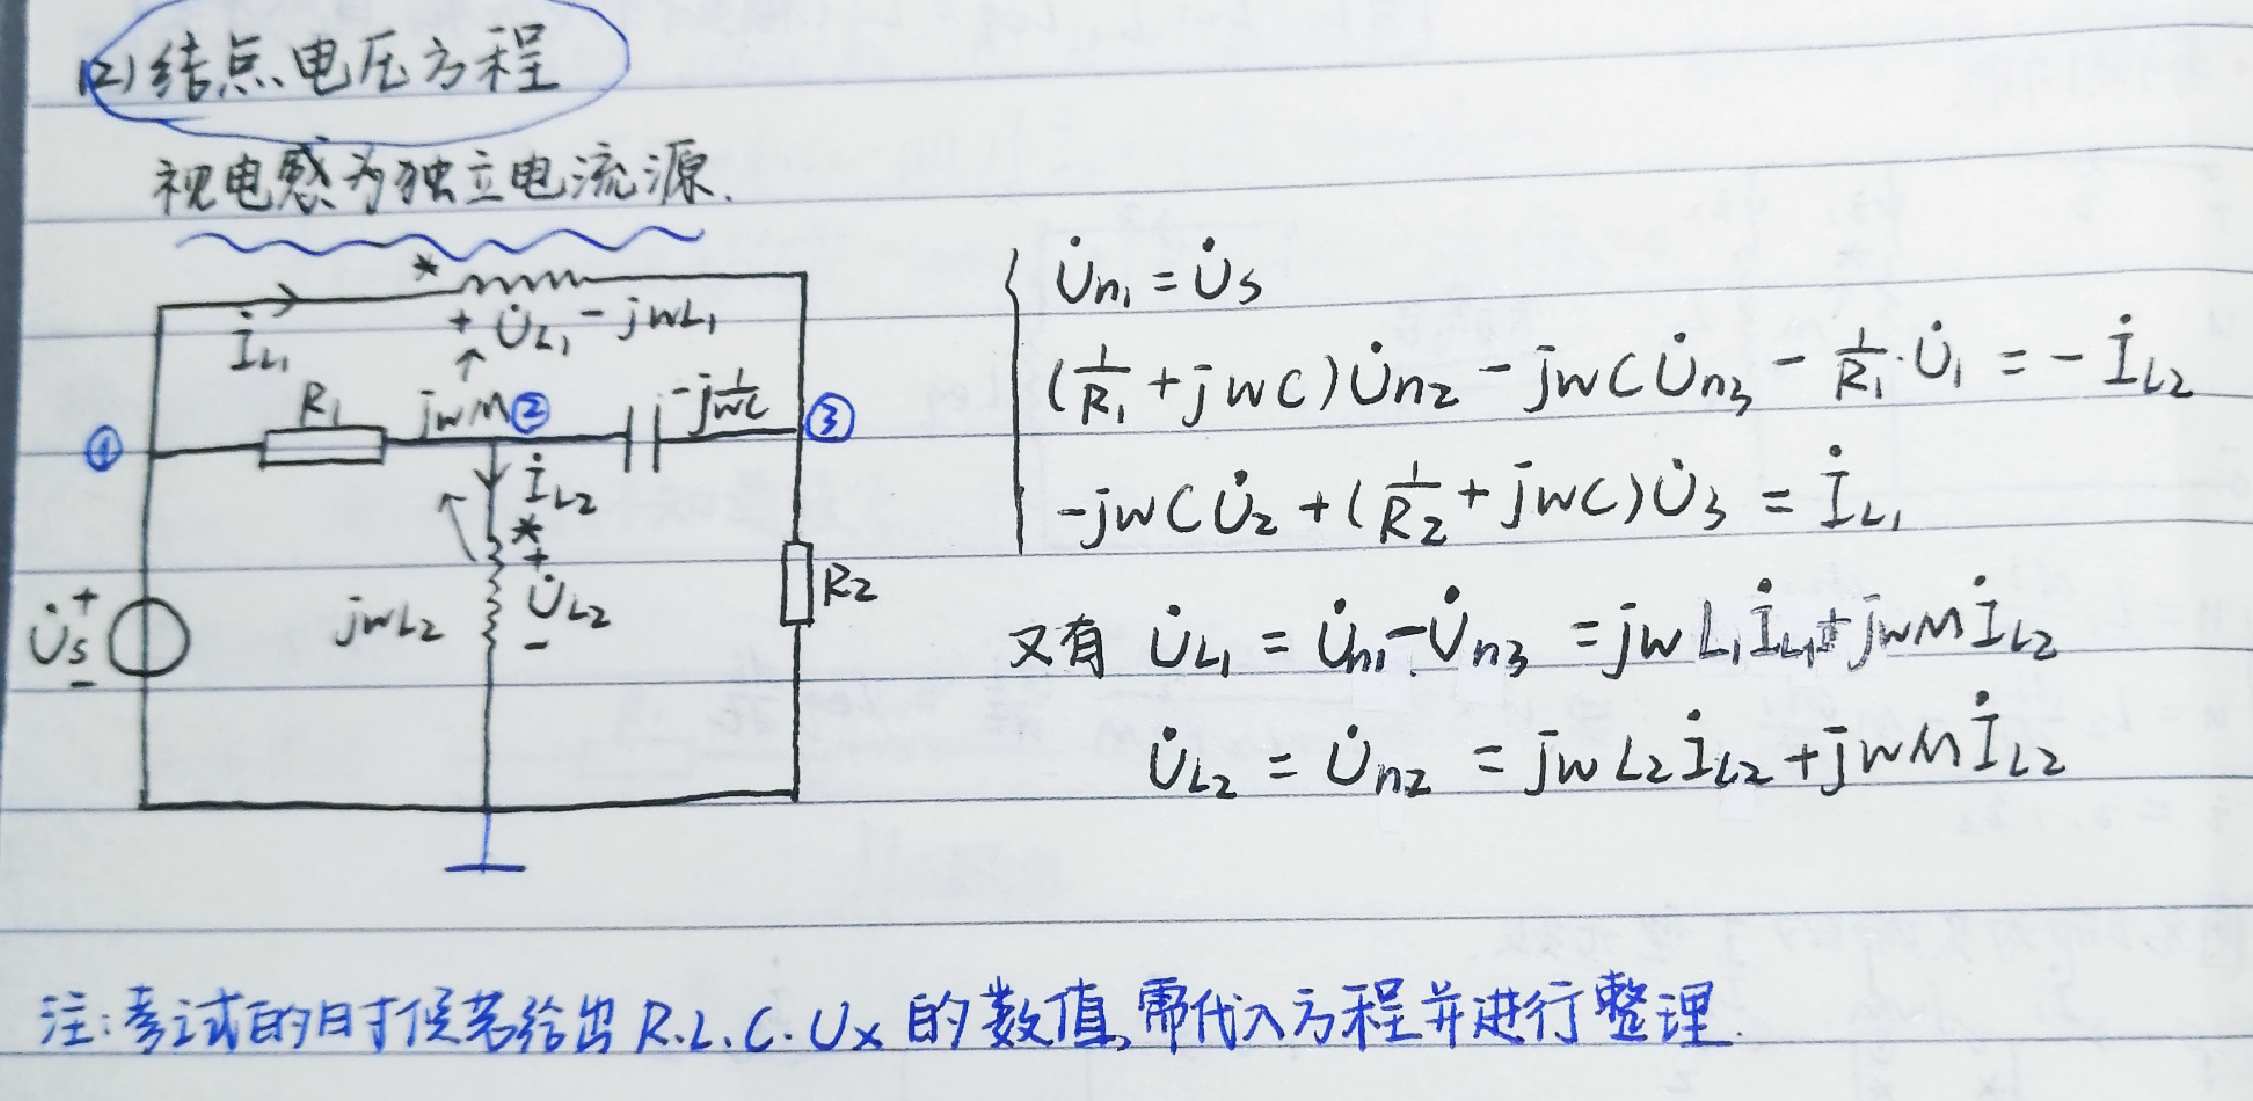 (2)结点电压方程
视电感为独立电流源.
* İL1 + U̇L1 - jwL1
R1 jwM ② -j1/wC
① ③
İL2
* +
U̇s + - jwL2 U̇L2 - R2
U̇n1 = U̇s
(1/R1 + jwC)U̇n2 - jwCU̇n3 - 1/R1·U̇1 = -İL2
-jwCU̇2 + (1/R2 + jwC)U̇3 = İL1
又有 U̇L1 = U̇n1 - U̇n3 = jwL1İL1 + jwMİL2
U̇L2 = U̇n2 = jwL2İL2 + jwMİL2
注:考试的时候若给出R.L.C.Ux的数值,需代入方程并进行整理.